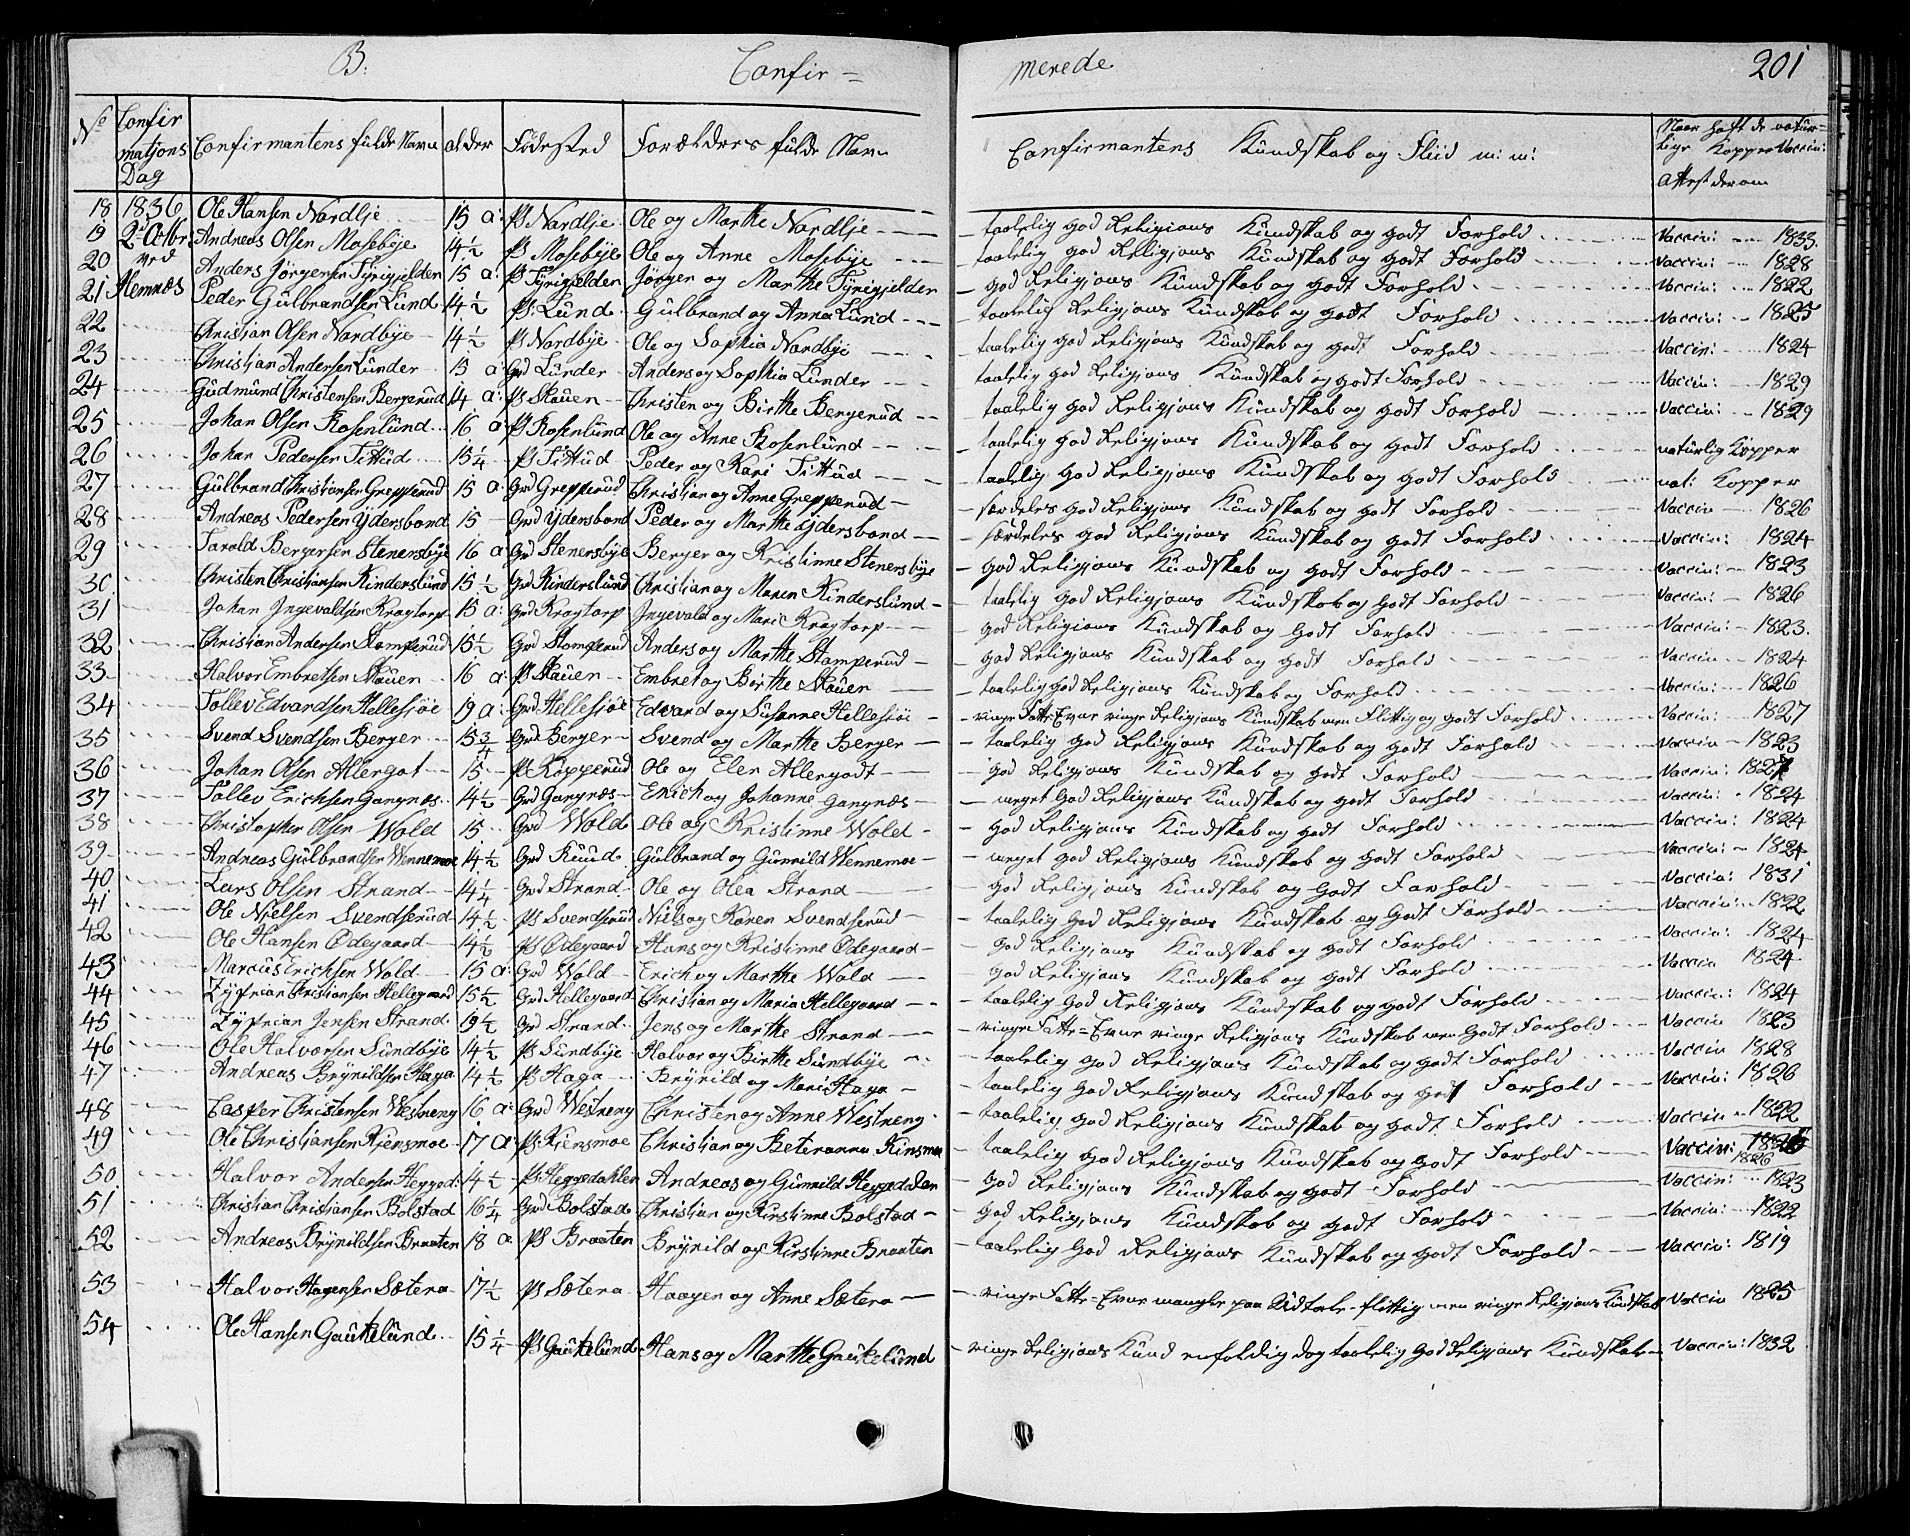 B.
Confir=
merede
201
No
Confirmatjons Dag
Confirmantens fulde Navn
alder
Fødested
Forældres fulde Navn
Confirmantens Kundskab og Fliid m: m:
Naar haft de naturlige Kopper Vaccin: Attest derom
18 1836 Ole Hansen Nordlie 15 a: Ps Nordlie Ole og Marthe Nordlie taalelig god Religions Kundskab og godt Forhold Vaccin: 1833.
19 2d Octbr Andreas Olsen Mosebye 14 1/2 Ps Mosebye Ole og Anne Mosebye taalelig god Religjons Kundskab og godt Forhold Vaccin: 1828
20 ved Anders Jörgensen Tyrigjelden 15 a: Ps Tyrigjelden Jörgen og Marthe Tyrigjelden god Religjons Kundskab og godt Forhold Vaccin: 1822
21 Hemnæs Peder Gulbrandsen Lund 14 1/2 Ps: Lund Gulbrand og Anna Lund taalelig Religjons Kundskab og godt Forhold Vaccin: 1825
22 Christian Olsen Nordbye 14 1/2 Ps Nordbye Ole og Sophia Nordbye taalelig god Religjons Kundskab og godt Forhold Vaccin: 1824
23 Christian Andersen Lunder 15 a: Grd Lunder Anders og Sophia Lunder taalelig god Religjons Kundskab og godt Forhold Vaccin: 1829
24 Gudmund Christensen Bergerud 14 a: Ps Skauen Christen og Birthe Bergerud taalelig god Religjons Kundskab og godt Forhold Vaccin: 1829
25 Johan Olsen Rosenlund 16 a: Ps Rosenlund Ole og Anne Rosenlund taalelig god Religjons Kundskab og godt Forhold naturlig Kopper
26 Johan Pedersen Tittud 15 1/4 Ps Tittud Peder og Kari Tittud taalelig god Religjons Kundskab og godt Forhold nat: Kopper
27 Gulbrand Christiansen Grepperud 15 a: Grd Grepperud Christian og Anne Grepperud særdeles god Religjons Kundskab og godt Forhold Vaccin 1826
28 Andreas Pedersen Ydersbond 15 Grd Ydersbond Peder og Marthe Ydersbond særdeles god Religjons Kundskab og godt Forhold Vaccin: 1824
29 Tarald Bergersen Stenersbye 16 a: Grd Stenersbye Berger og Kristinne Stenersbye god Religjons Kundskab og godt Forhold Vaccin: 1823
30 Christen Christiansen Kinderslund 15 1/2 Grd Kinderslund Christian og Maren Kinderslund taalelig god Religjons Kundskab og godt Forhold Vaccin: 1826
31 Johan Ingevaldsen Kragtorp 15 a: Grd Kragtorp Ingevald og Mari Kragtorp god Religions Kundskab og godt Forhold Vaccin: 1823.
32 Christian Andersen Stomperud 15 1/2 Grd Stomperud Anders og Marthe Stomperud god Religjons Kundskab og godt Forhold Vaccin: 1824
33 Halvor Embretsen Skauen 16 a: Ps Skauen Embret og Birthe Skauen taalelig god Religjons Kundskab og Forhold Vaccin: 1826
34 Tollev Edvardsen Hellesjøe 19 a: Grd Hellesjøe Edvard og Susanne Hellesjøe ringe Fatte-Evne ringe Religjons Kundskab men Flittig og godt Forhold Vaccin: 1827
35 Svend Svendsen Berger 15 3/4 Grd Berger Svend og Marthe Berger taalelig god Religjons Kundskab og godt Forhold Vaccin 1823
36 Johan Olsen Allergot 15 Ps Kopperud Ole og Elen Allergodt god Religjons Kundskab og godt Forhold Vaccin: 1827
37 Tollev Erichsen Gangnæs 14 1/2 Grd Gangnæs Erich og Johanne Gangnæs meget god Religjons Kundskab og godt Forhold Vaccin: 1824
38 Christopher Olsen Wold 15 Grd Wold Ole og Kristinne Wold god Religjons Kundskab og godt Forhold Vaccin: 1824
39 Andreas Gulbrandsen Wennemoe 14 1/2 Grd Ruud Gulbrand og Gunnild Wennemoe meget god Religjons Kundskab og godt Forhold Vaccin: 1824
40 Lars Olsen Strand 14 1/4 Grd Strand Ole og Olea Strand god Religjons Kundskab og godt Forhold Vaccin: 1831
41 Ole Nielsen Svendserud 14 1/2 Ps Svendserud Niels og Karen Svendserud taalelig god Religjons Kundskab og godt Forhold Vaccin: 1822
42 Ole Hansen Ødegaard 14 1/2 Ps Ødegaard Hans og Kristinne Ødegaard god Religjons Kundskab og godt Forhold Vaccin: 1824
43 Marcus Erichsen Wold 15 a: Grd Wold Erich og Marthe Wold god Religjons Kundskab og godt Forhold Vaccin 1824
44 Zyprian Christiansen Hellegaard 15 1/2 Grd Hellegaard Christian og Maria Hellegaard taalelig god Religjons Kundskab og godt Forhold Vaccin: 1824
45 Zyprian Jensen Strand 19 1/2 Grd Strand Jens og Marthe Strand ringe Fatte-Evne ringe Religjons Kundskab men godt Forhold Vaccin 1823
46 Ole Halvorsen Sundbye 14 1/2 Ps Sundbye Halvor og Birthe Sundbye taalelig god Religjons Kundskab og godt Forhold Vaccin 1828
47 Andreas Brynildsen Haga 14 1/2 Ps Haga Brynild og Mari Haga taalelig god Religjons Kundskab og godt Forhold Vaccin: 1826
48 Casper Christensen Westreng 16 a: Grd Westreng Christen og Anne Westreng taalelig god Religjons Kundskab og godt Forhold Vaccin 1822
49 Ole Christiansen Kjensmoe 17 a: Ps Kjensmoe Christian og Beteranna Kinsmoe taalelig god Religjons Kundskab og godt Forhold Vaccin: 1826
1826
50 Halvor Andersen Hegged: 14 1/2 Ps Heggedahlen Andreas og Gunnild Heggedalen god Religjons Kundskab og godt Forhold Vaccin: 1823
51 Christian Christiansen Bolstad 16 1/4 Grd Bolstad Christian og Kirstinne Bolstad god Religjons Kundskab og godt Forhold Vaccin: 1822
52 Andreas Brynildsen Braaten 18 a: Ps Braaten Brynild og Kirstinne Braaten taalelig god Religjons Kundskab og godt Forhold Vaccin: 1819
53 Halvor Hagensen Sætera 17 1/2 Ps Sætera Haagen og Anne Sætera ringe Fatte-Evne mangler paa Udtale - flittig men ringe Religjons Kundskab Vaccin 1825
54 Ole Hansen Gaukelund 15 1/4 Ps Gaukelund Hans og Marthe Gaukelund ringe Religjons Kund enfoldig dog taalelig god Religjons Kundskab Vaccin: 1832